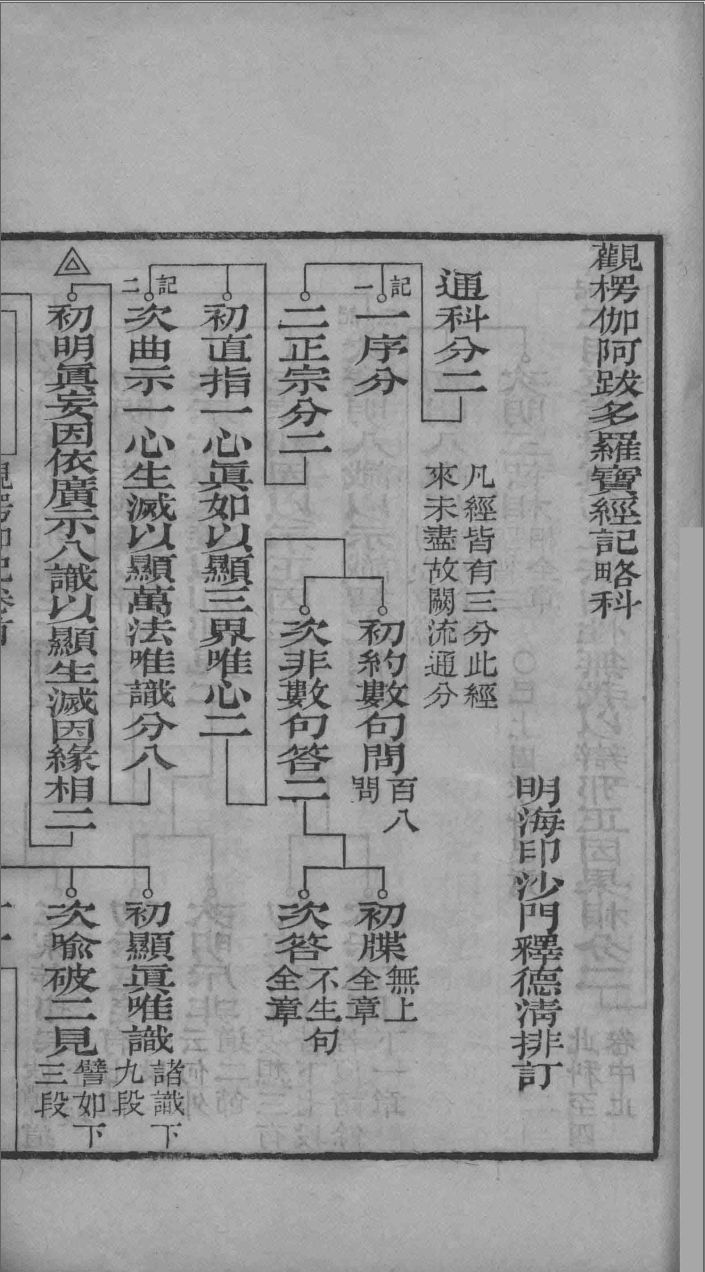 觀楞伽阿跋多羅寶經記略科
明海印沙門釋德清排訂
通科分二
凡經皆有三分此經
來未盡故闕流通分
記一
一序分
二正宗分二
初直指一心眞如以顯三界唯心二
初約數句問
百八
問
次非數句答二
初牒
無上
全章
次答
不生句
全章
記二
次曲示一心生滅以顯萬法唯識分八
初明眞妄因依廣示八識以顯生滅因緣相二
初顯眞唯識
諸識下
九段
次喻破二見
譬如下
三段